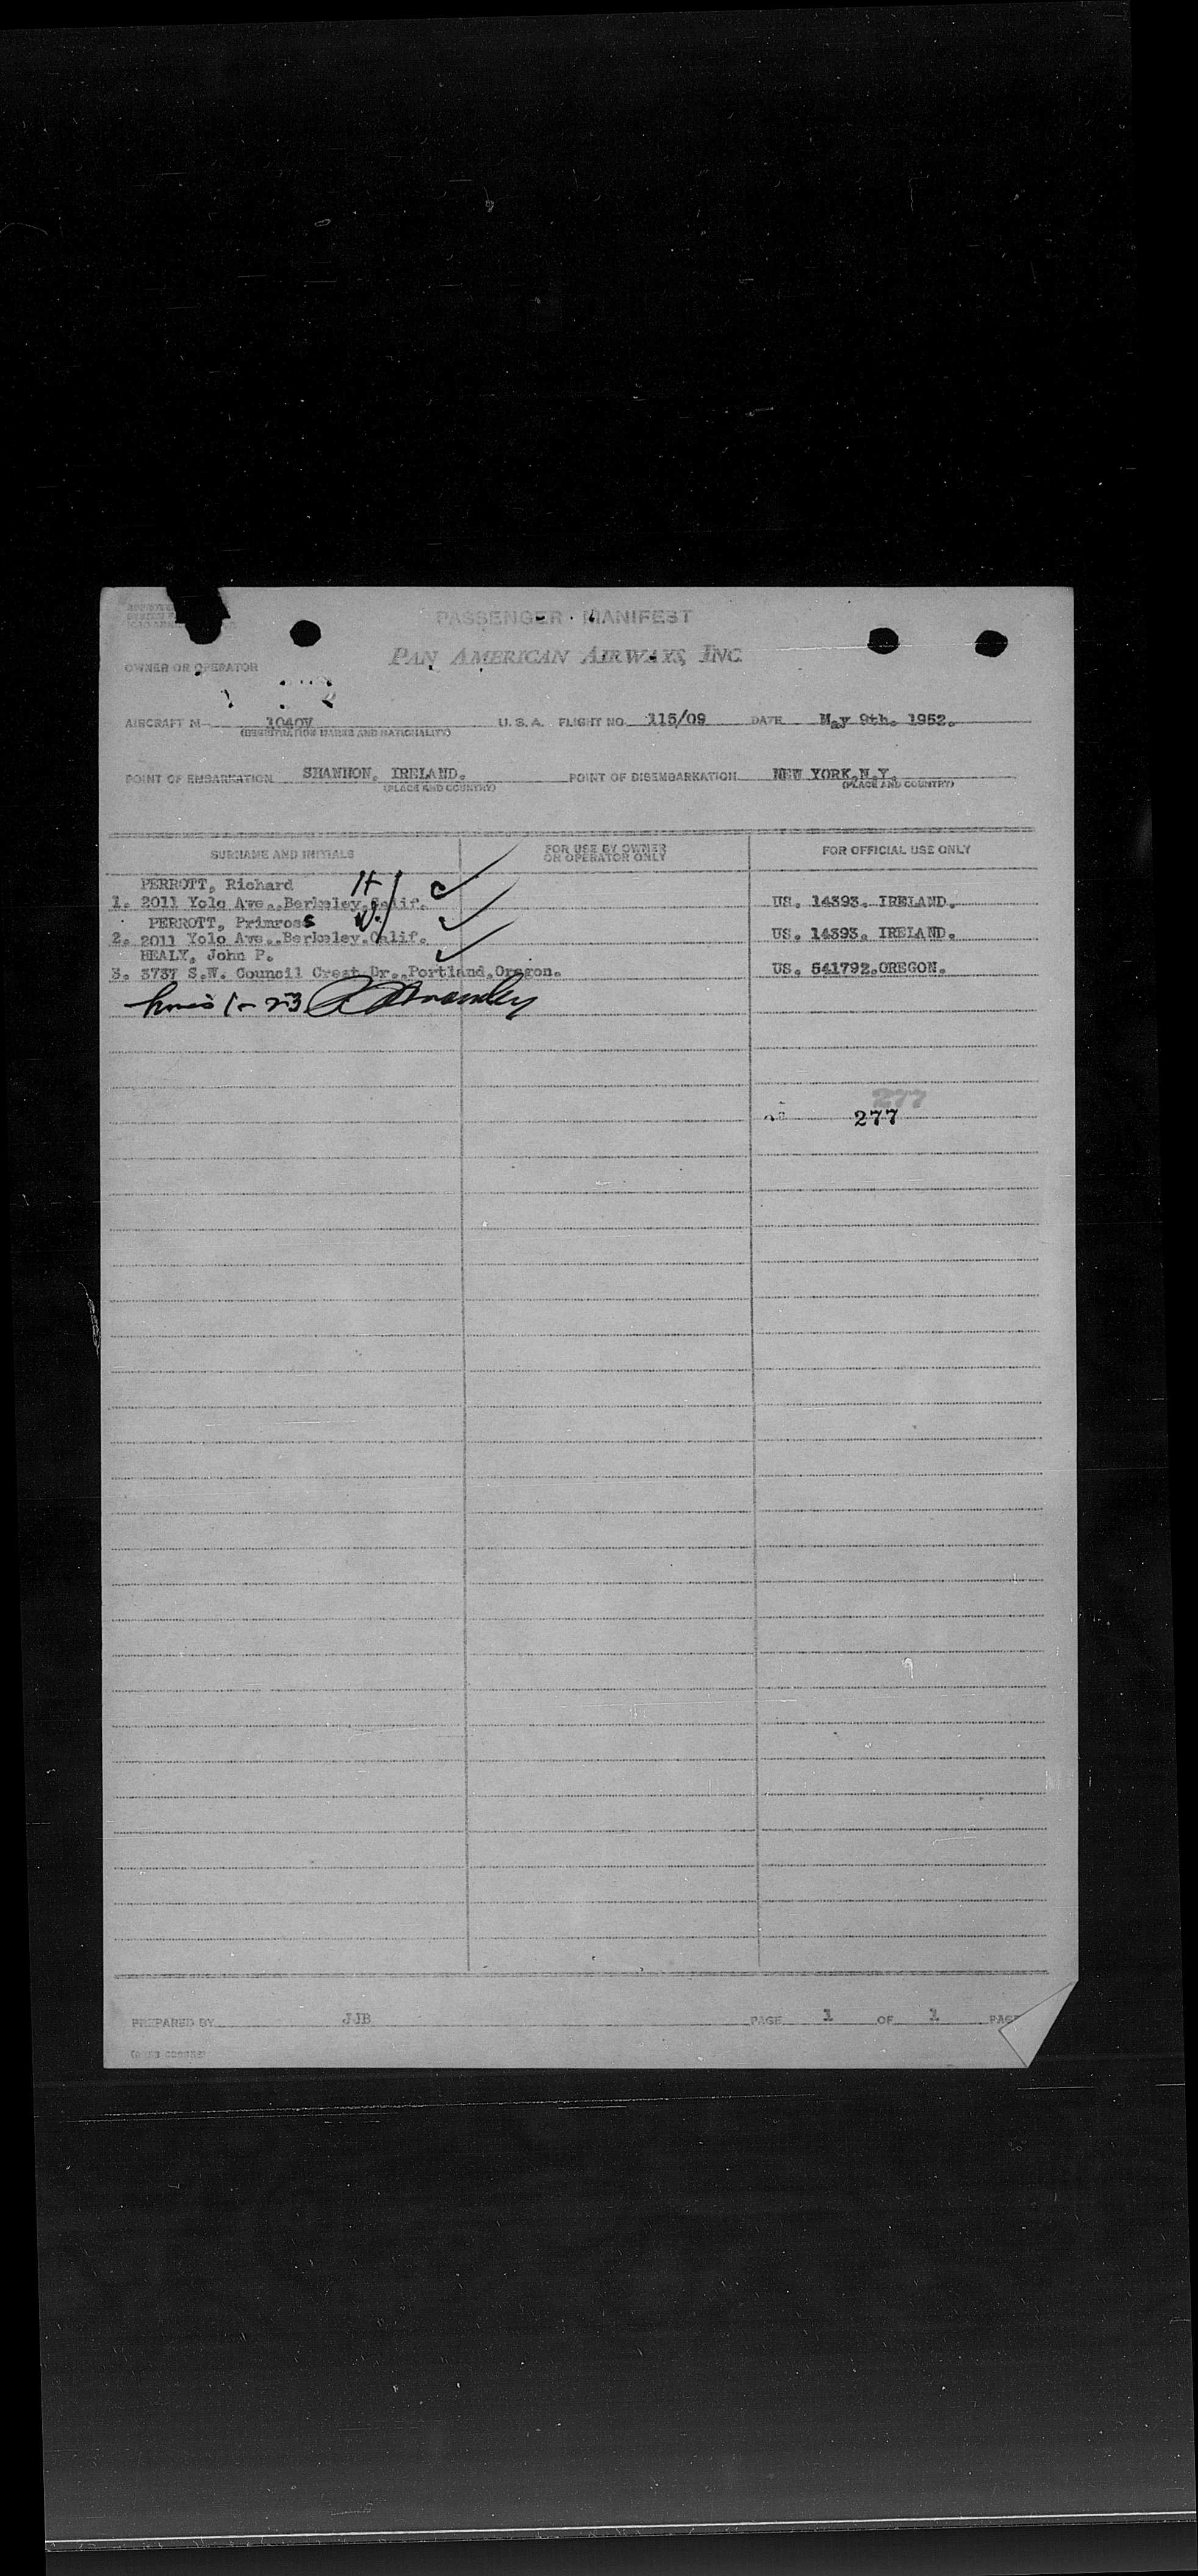 PASSENGER MANIFEST
PAN AMERICAN AIRWAYS, INC.
OWNER OR OPERATOR
AIRCRAFT N- 1040V U. S. A. FLIGHT NO. 115/09 DATE May 9th. 1952.
(REGISTRATION MARKS AND NATIONALITY)
POINT OF EMBARKATION SHANNON, IRELAND. POINT OF DISEMBARKATION NEW YORK,N.Y.
(PLACE AND COUNTRY) (PLACE AND COUNTRY)
SURNAME AND INITIALS FOR USE BY OWNER OR OPERATOR ONLY FOR OFFICIAL USE ONLY
PERROTT, Richard H
1. 2011 Yolo Ave..Berkeley.Calif. US. 14393. IRELAND.
PERROTT, Primross W.
2. 2011 Yolo Ave..Berkeley.Calif. US. 14393. IRELAND.
HEALY, John P.
3. 3737 S.W. Council Crest Dr..Portland.Oregon. US. 541792.OREGON.
1-23
277
277
PREPARED BY JJB PAGE 1 OF 1